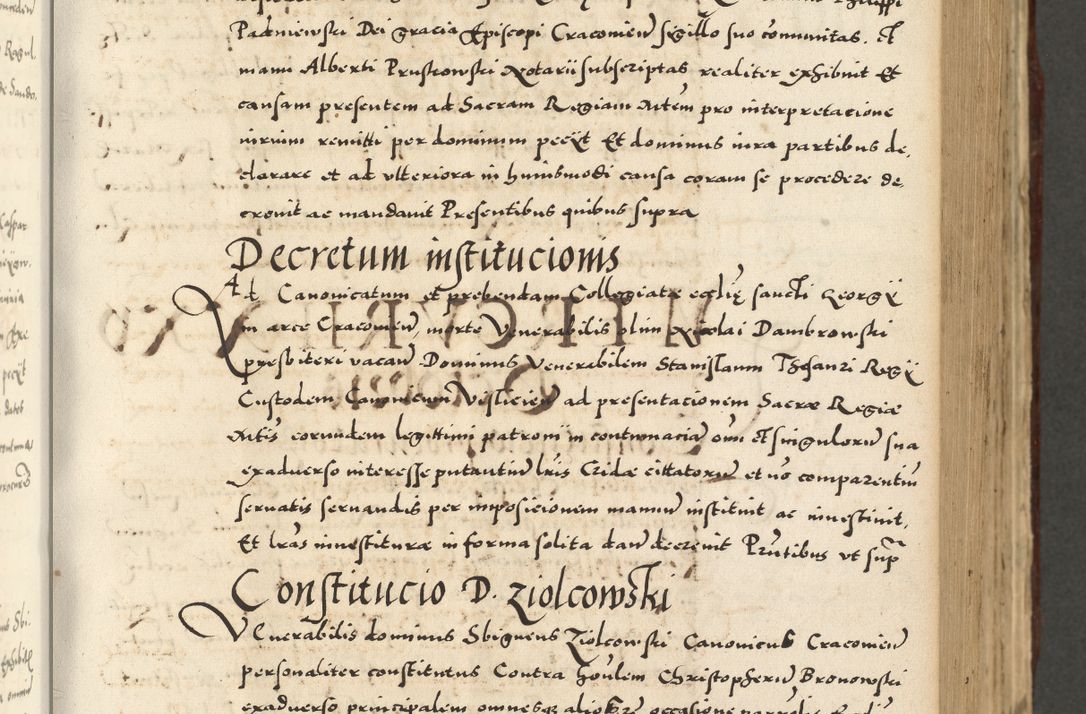 Padniewski Dei gracia Episcopi Cracovien̄ sigillo suo com̄unitas. et
manu Alberti Pruskowski Notarii subscriptas realiter exhibuit Et
causam presentem ad Sacram Regiam Mtēm pro interpretacione
iurium remitti per dominum peciit Et dominus iura partibus de,
clarare et ad ulteriora in huiusmodi causa coram se procedere de,
crevit ac mandavit Presentibus quibus supra
Decretum institucionis
Ad Canonicatum et prebendam Collegiatæ eccłię sancti Georgii
in arce Cracovien̄, morte Venerabilis olim Nicolai Dambrowski
presbiteri vacan̄ Dominus Venerabilem Stanislaum Regii
Custodem Canonicum Vislicien̄ ad presentacionem Sacræ Regiæ
Mtis eorundem legittimi patroni in contumaciā om̄ et singulorū sua
exadverso interesse putantiū lrīs Cridæ cittatorū et nō comparentiū
servatis servandis per imposicionem manuū instituit ac investivit,
Et lrās investituræ in forma solita dan̄ decrevit Prn̄tibus ut sup̄
Constitucio D. Ziolcowski
Venerabilis dominus Sbigneus Ziolcowski Canonicus Cracovien̄
personaliter constitutus Contra Christopherū Bronowski
exadverso principalem omnesq alios occasione